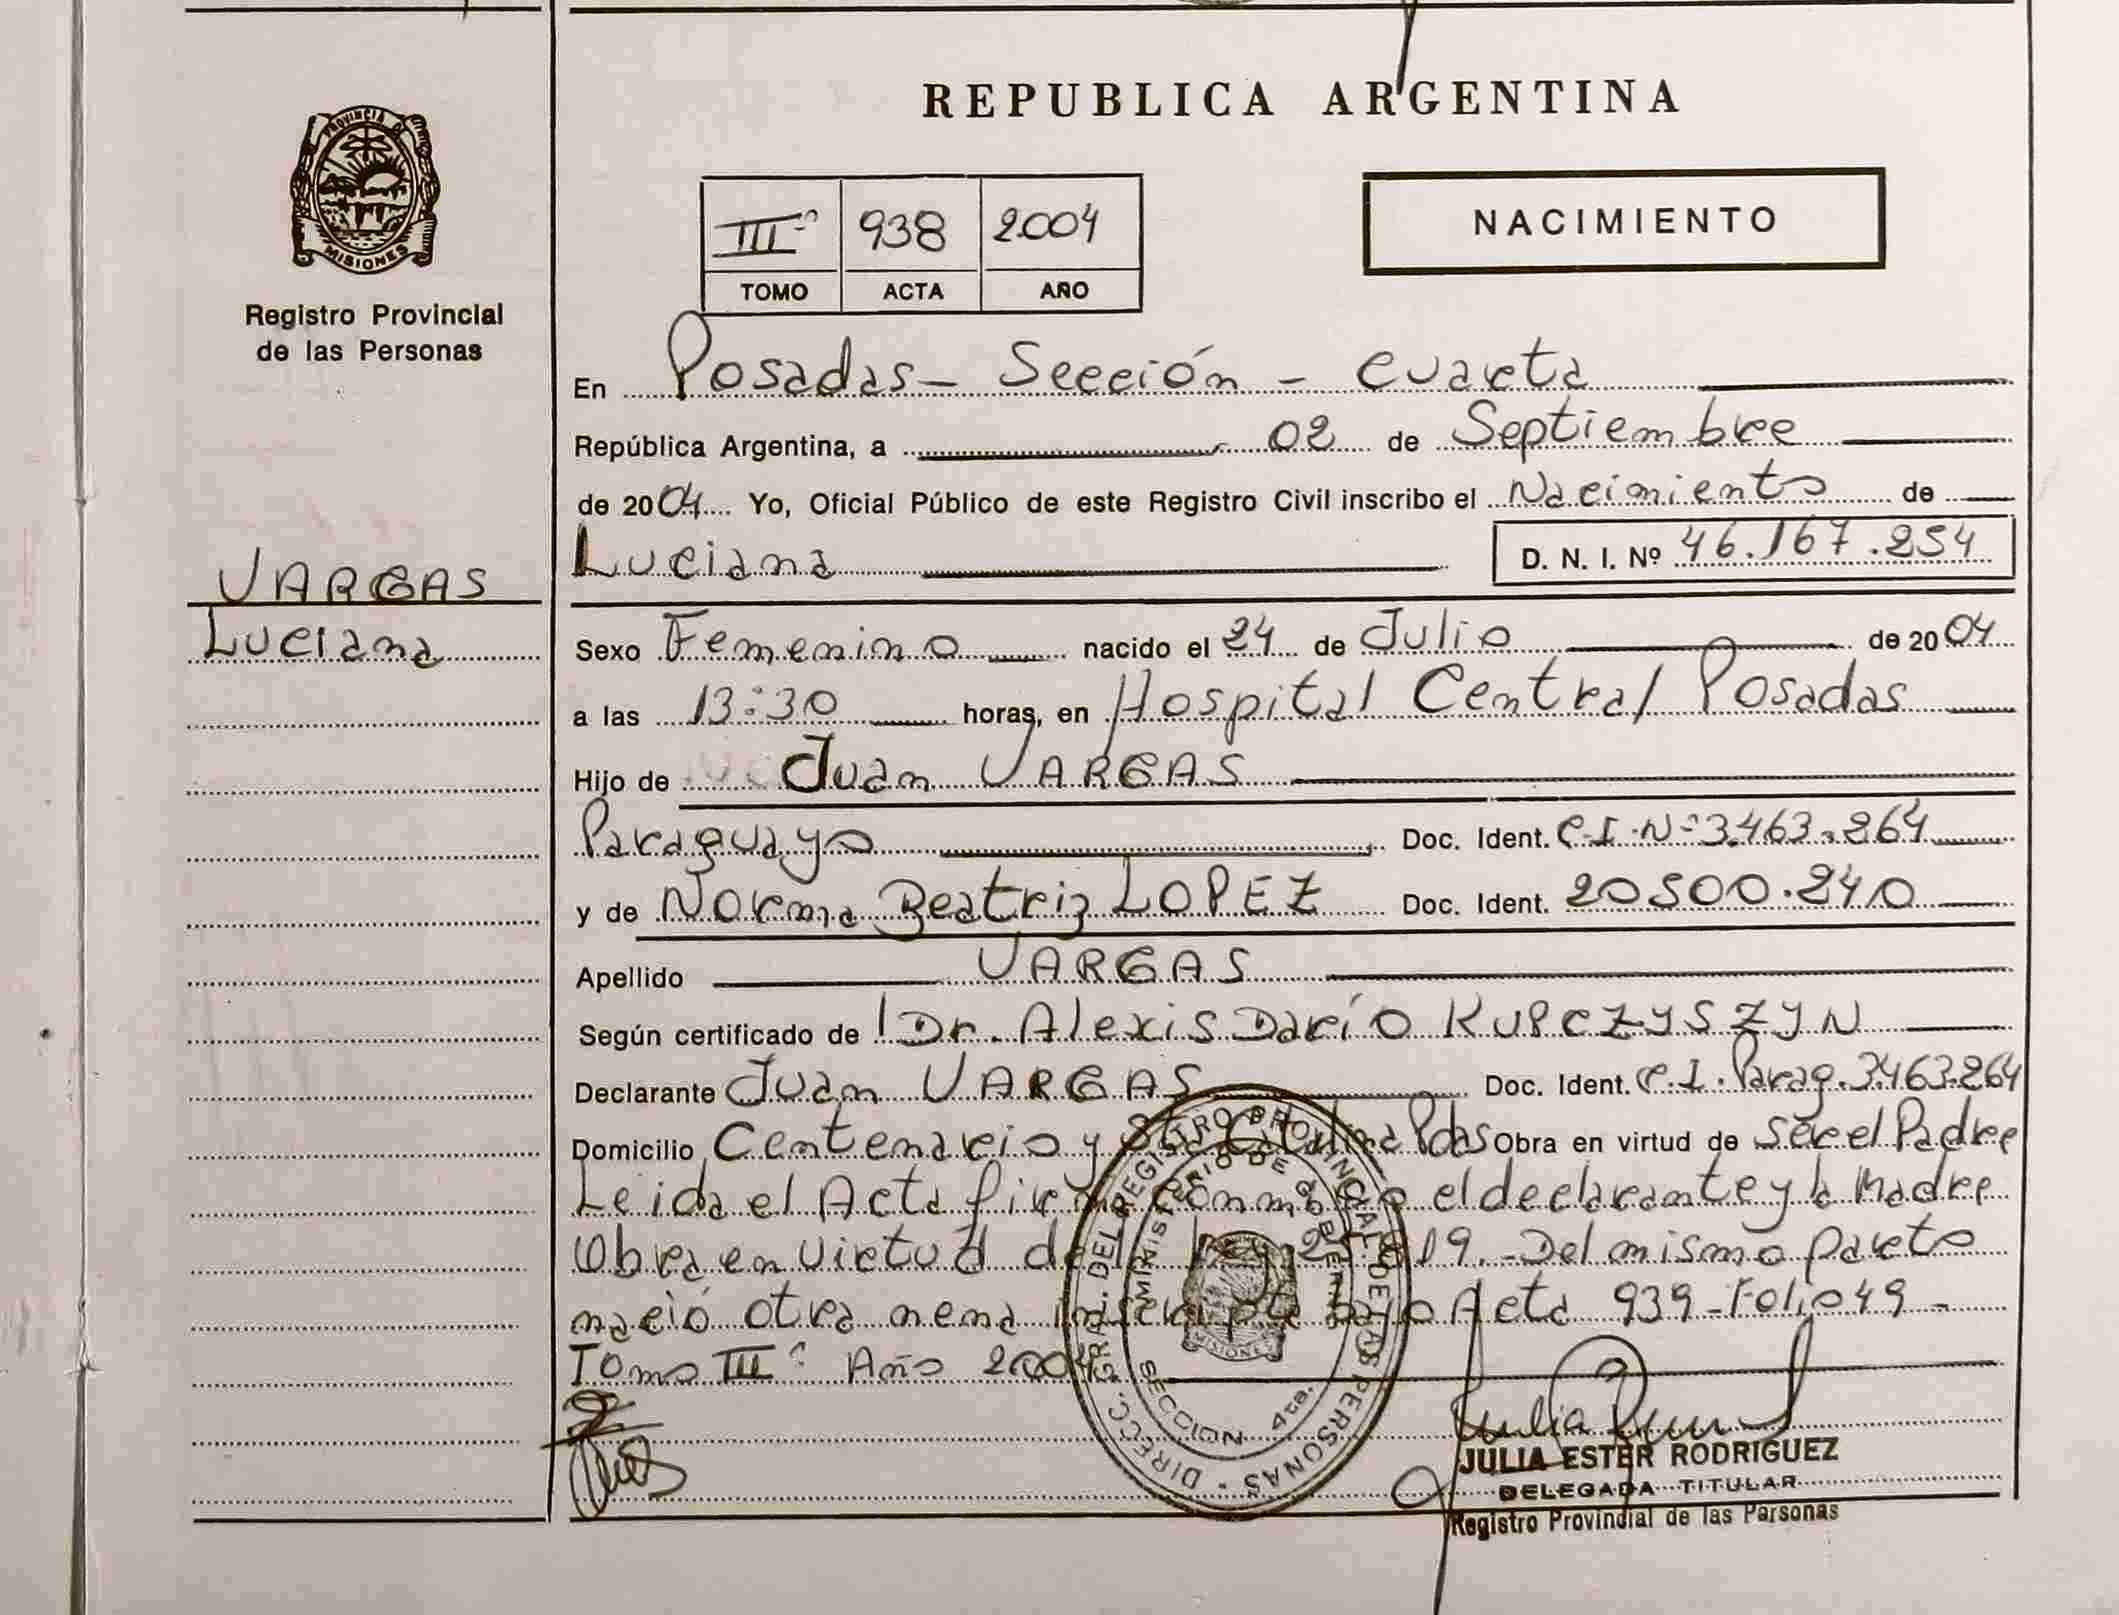 REPUBLICA ARGENTINA
PROVINCIA DE
MISIONES
Registro Provincial
de las Personas
III° 938 2004
TOMO ACTA AÑO
NACIMIENTO
En Posadas - Sección - Cuarta
República Argentina, a 02 de Septiembre
de 2004 Yo, Oficial Público de este Registro Civil inscribo el Nacimiento de
Luciana D. N. I. Nº 46.167.254
VARGAS
Luciana
Sexo Femenino nacido el 24 de Julio de 2004
a las 13:30 horas, en Hospital Central Posadas
Hijo de Juan VARGAS
Paraguayo Doc. Ident. C.I.Nº 3.463.264
y de Norma Beatriz LOPEZ Doc. Ident. 20500.240
Apellido VARGAS
Según certificado de Dr. Alexis Darío KUPCZYSZYN
Declarante Juan VARGAS Doc. Ident. C.I. Parag. 3.463.264
Domicilio Centenario y Sta Catalina Pdas Obra en virtud de ser el Padre
Leida el Acta firman conmigo el declarante y la Madre
Obra en virtud de Ley 19. - Del mismo parto
nació otra nena inscripta bajo Acta 939 - Folio 49 -
Tomo III° Año 2004
DIRECC. GRAL. DEL REGISTRO PROVINCIAL DE LAS PERSONAS
MINISTERIO DE GOBIERNO
MISIONES
SECCION 4ta.
JULIA ESTER RODRIGUEZ
DELEGADA TITULAR
Registro Provincial de las Personas